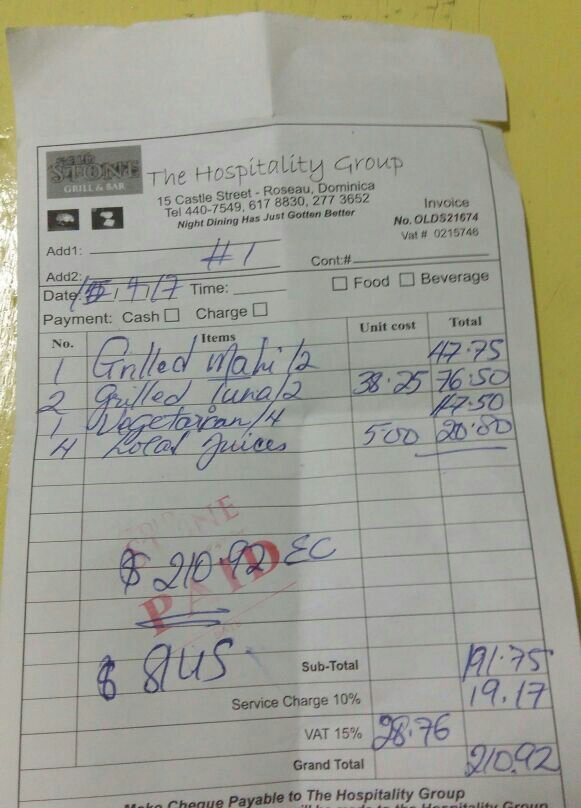 OLD STONE
GRILL & BAR
The Hospitality Group
15 Castle Street - Roseau, Dominica
Tel 440-7549, 617 8830, 277 3652
Night Dining Has Just Gotten Better
Invoice
No. OLDS21674
Vat # 0215746
Add1:
#1
Add2: Cont:#
Date: 4/7 Time: Food Beverage
Payment: Cash Charge
No. Items Unit cost Total
1 Grilled Mahi/2 47.75
2 Grilled Tuna/2 38.25 76.50
1 Vegetarian/4 47.50
4 Local Juices 5.00 20.00
$ 210.92 EC
PAID
$ 81 US
Sub-Total 191.75
Service Charge 10% 19.17
VAT 15% 28.76
Grand Total 210.92
Make Cheque Payable to The Hospitality Group
will be made to the Hospitality Group